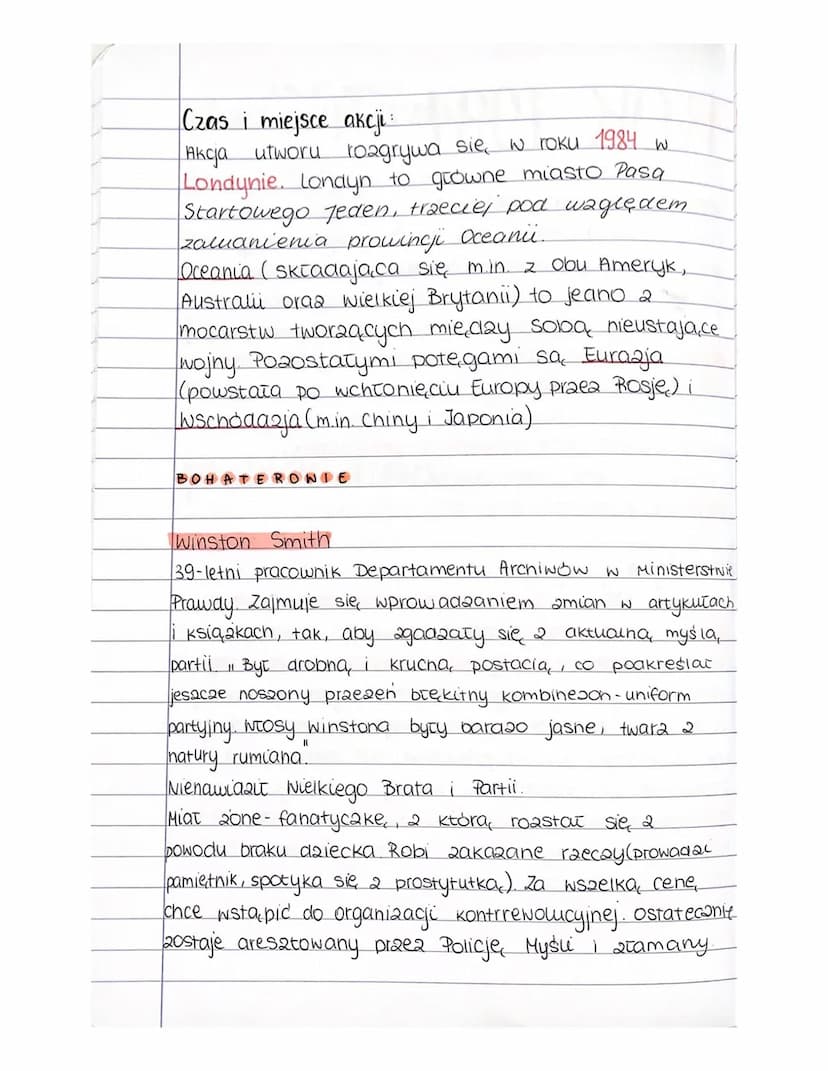 Czas i miejsce akcji:
Akcja utworu rozgrywa się w roku 1984 w
Londynie. Londyn to główne miasto Pasa
Startowego Jeden, trzeciej pod względem
zaludnienia prowincji Oceanii.
Oceania (składająca się m.in. z Obu Ameryk,
Australii oraz Wielkiej Brytanii) to jedno z
mocarstw tworzących między sobą nieustające
wojny. Pozostałymi potęgami są Eurazja
(powstała po wchłonięciu Europy przez Rosję) i
Wschódazja (m.in. Chiny i Japonia)
BOHATEROWIE
Winston Smith
39-letni pracownik Departamentu Archiwów w Ministerstwie
Prawdy. Zajmuje się wprowadzaniem zmian w artykułach
i książkach, tak, aby zgadzały się z aktualną myślą
partii. „Był drobną i kruchą postacią, co podkreślał
jeszcze noszony przezeń błękitny kombinezon-uniform
partyjny. Włosy Winstona były bardzo jasne, twarz z
natury rumiana."
Nienawidził Wielkiego Brata i Partii.
Miał żonę-fanatyczkę, z którą rozstał się z
powodu braku dziecka. Robi zakazane rzeczy (prowadzi
pamiętnik, spotyka się z prostytutką). Za wszelką cenę
chce wstąpić do organizacji kontrrewolucyjnej. Ostatecznie
zostaje aresztowany przez Policję Myśli i złamany.